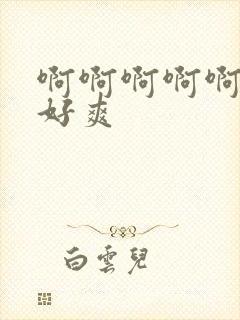 啊啊啊啊啊
好爽
白雲兒